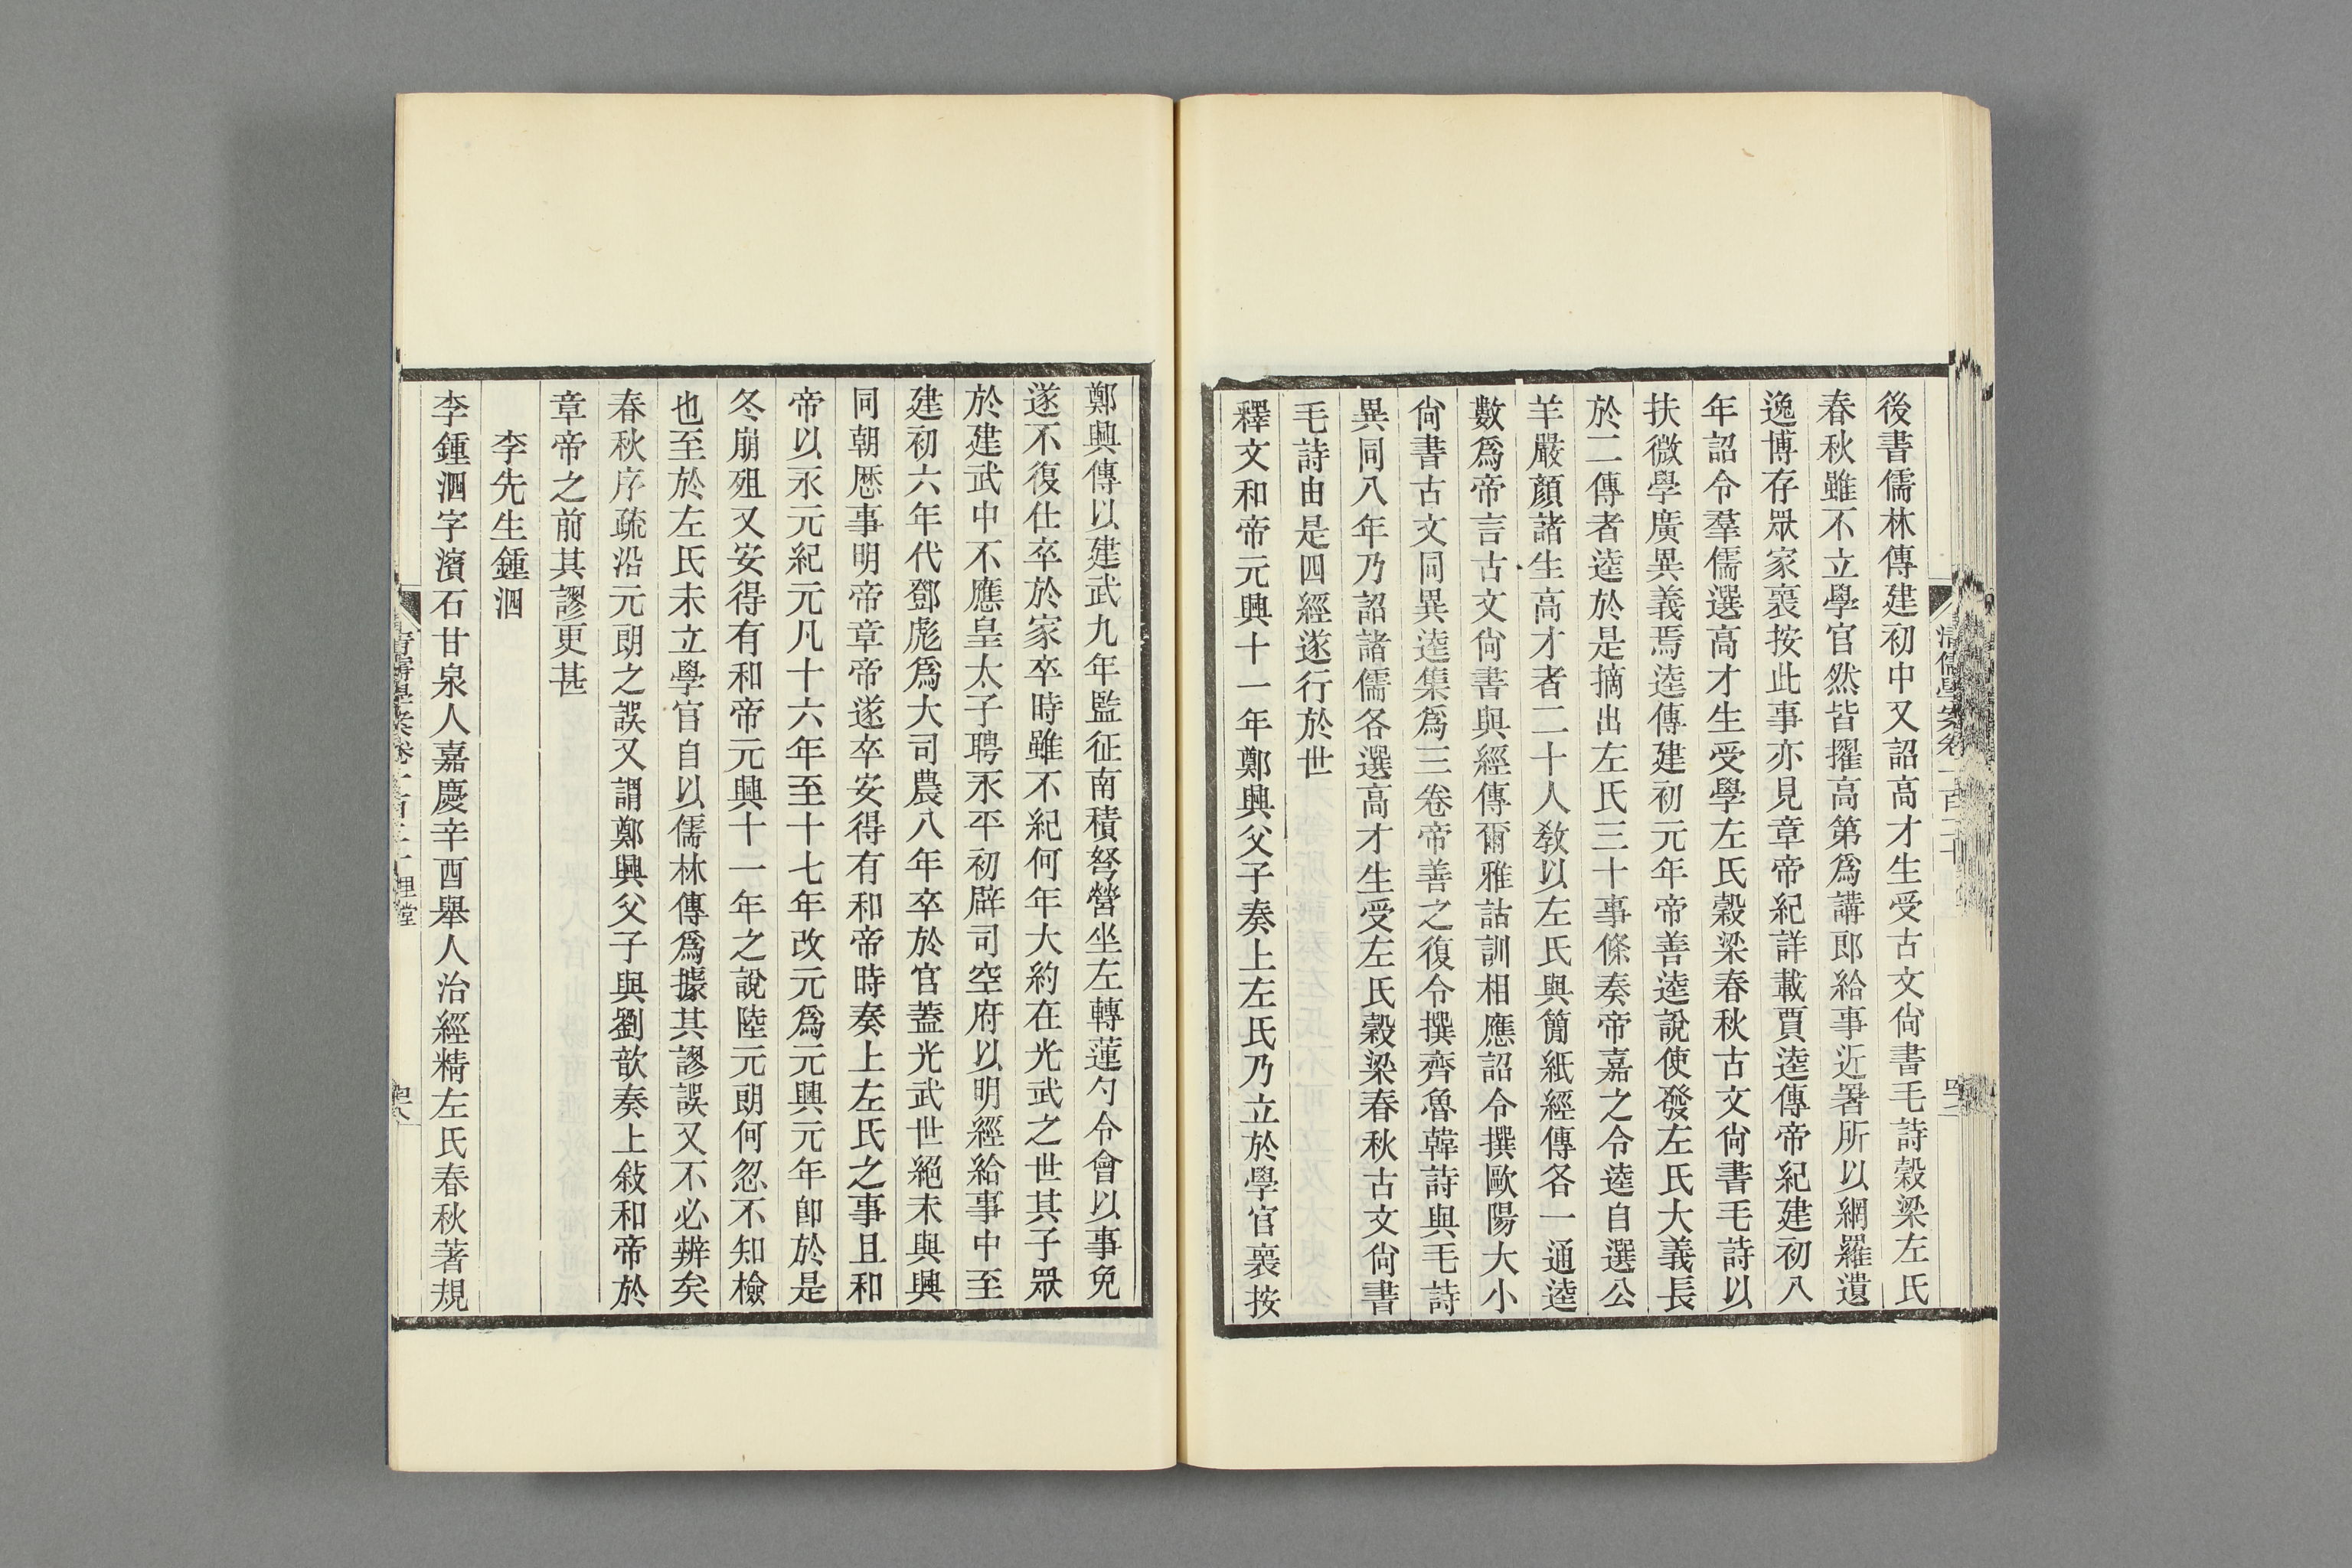 後書儒林傳建初中又詔高才生受古文尙書毛詩穀梁左氏
春秋雖不立學官然皆擢高第爲講郎給事近署所以網羅遺
逸博存眾家襄按此事亦見章帝紀詳載賈逵傳帝紀建初八
年詔令羣儒選高才生受學左氏穀梁春秋古文尙書毛詩以
扶微學廣異義焉逵傳建初元年帝善逵說使發左氏大義長
於二傳者逵於是摘出左氏三十事條奏帝嘉之令逵自選公
羊嚴顏諸生高才者二十人敎以左氏與簡紙經傳各一通逵
數爲帝言古文尙書與經傳爾雅詁訓相應詔令撰歐陽大小
尙書古文同異逵集爲三卷帝善之復令撰齊魯韓詩與毛詩
異同八年乃詔諸儒各選高才生受左氏穀梁春秋古文尙書
毛詩由是四經遂行於世
釋文和帝元興十一年鄭興父子奏上左氏乃立於學官襄按
鄭興傳以建武九年監征南積弩營坐左轉蓮勺令會以事免
遂不復仕卒於家卒時雖不紀何年大約在光武之世其子眾
於建武中不應皇太子聘永平初辟司空府以明經給事中至
建初六年代鄧彪爲大司農八年卒於官蓋光武世絕未與興
同朝歷事明帝章帝遂卒安得有和帝時奏上左氏之事且和
帝以永元紀元凡十六年至十七年改元爲元興元年卽於是
冬崩殂又安得有和帝元興十一年之說陸元朗何忽不知檢
也至於左氏未立學官自以儒林傳爲據其謬誤又不必辨矣
春秋序疏沿元朗之誤又謂鄭興父子與劉歆奏上敍和帝於
章帝之前其謬更甚
李先生鍾泗
李鍾泗字濱石甘泉人嘉慶辛酉舉人治經精左氏春秋著規